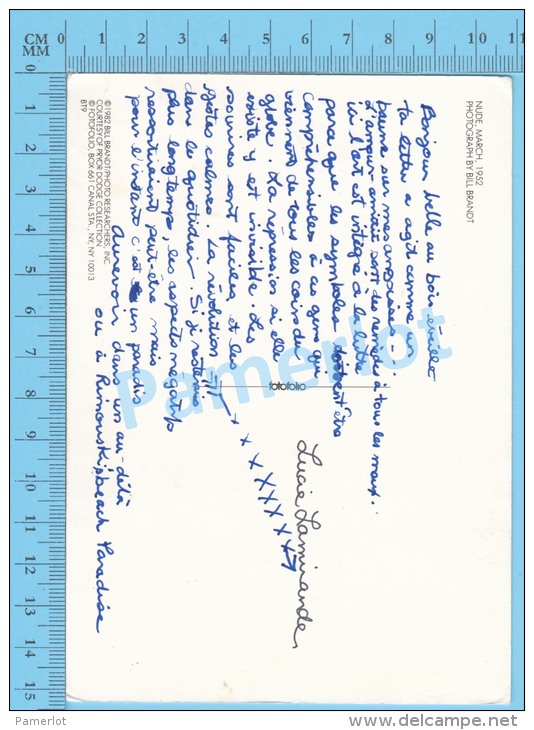 NUDE, MARCH, 1952
PHOTOGRAPH BY BILL BRANDT
Bonjour belle au bois éveillé
ta lettre a agit comme un
baume sur mes angoisses -
L'amour amitié sont des remèdes à tous les maux.
ici l'art est intégré à la lettre
parce que les symboles doivent être
compréhensibles à ces gens qui
viennent de tous les coins du
globe. La répression si elle
existe y est invisible. Les
sourires sont faciles et les
gestes calmes. La révolution
dans le quotidien. Si je resterais
plus longtemps, les aspects négatifs
ressortiraient peut-être mais
pour l'instant c'est un paradis
Aurevoir dans un au-delà
ou à Rimouski beach Paradise
x x x X X X X X
Lucie Lamirande,
fotofolio
© 1982 BILL BRANDT/PHOTO RESEARCHERS, INC
COURTESY OF PRYOR DODGE COLLECTION
© FOTOFOLIO, BOX 661 CANAL STA., NY, NY 10013
BT9
CM
MM
0 1 2 3 4 5 6 7 8 9 10 11
0 1 2 3 4 5 6 7 8 9 10 11 12 13 14 15
Pamerlot
Pamerlot
www.delcampe.net